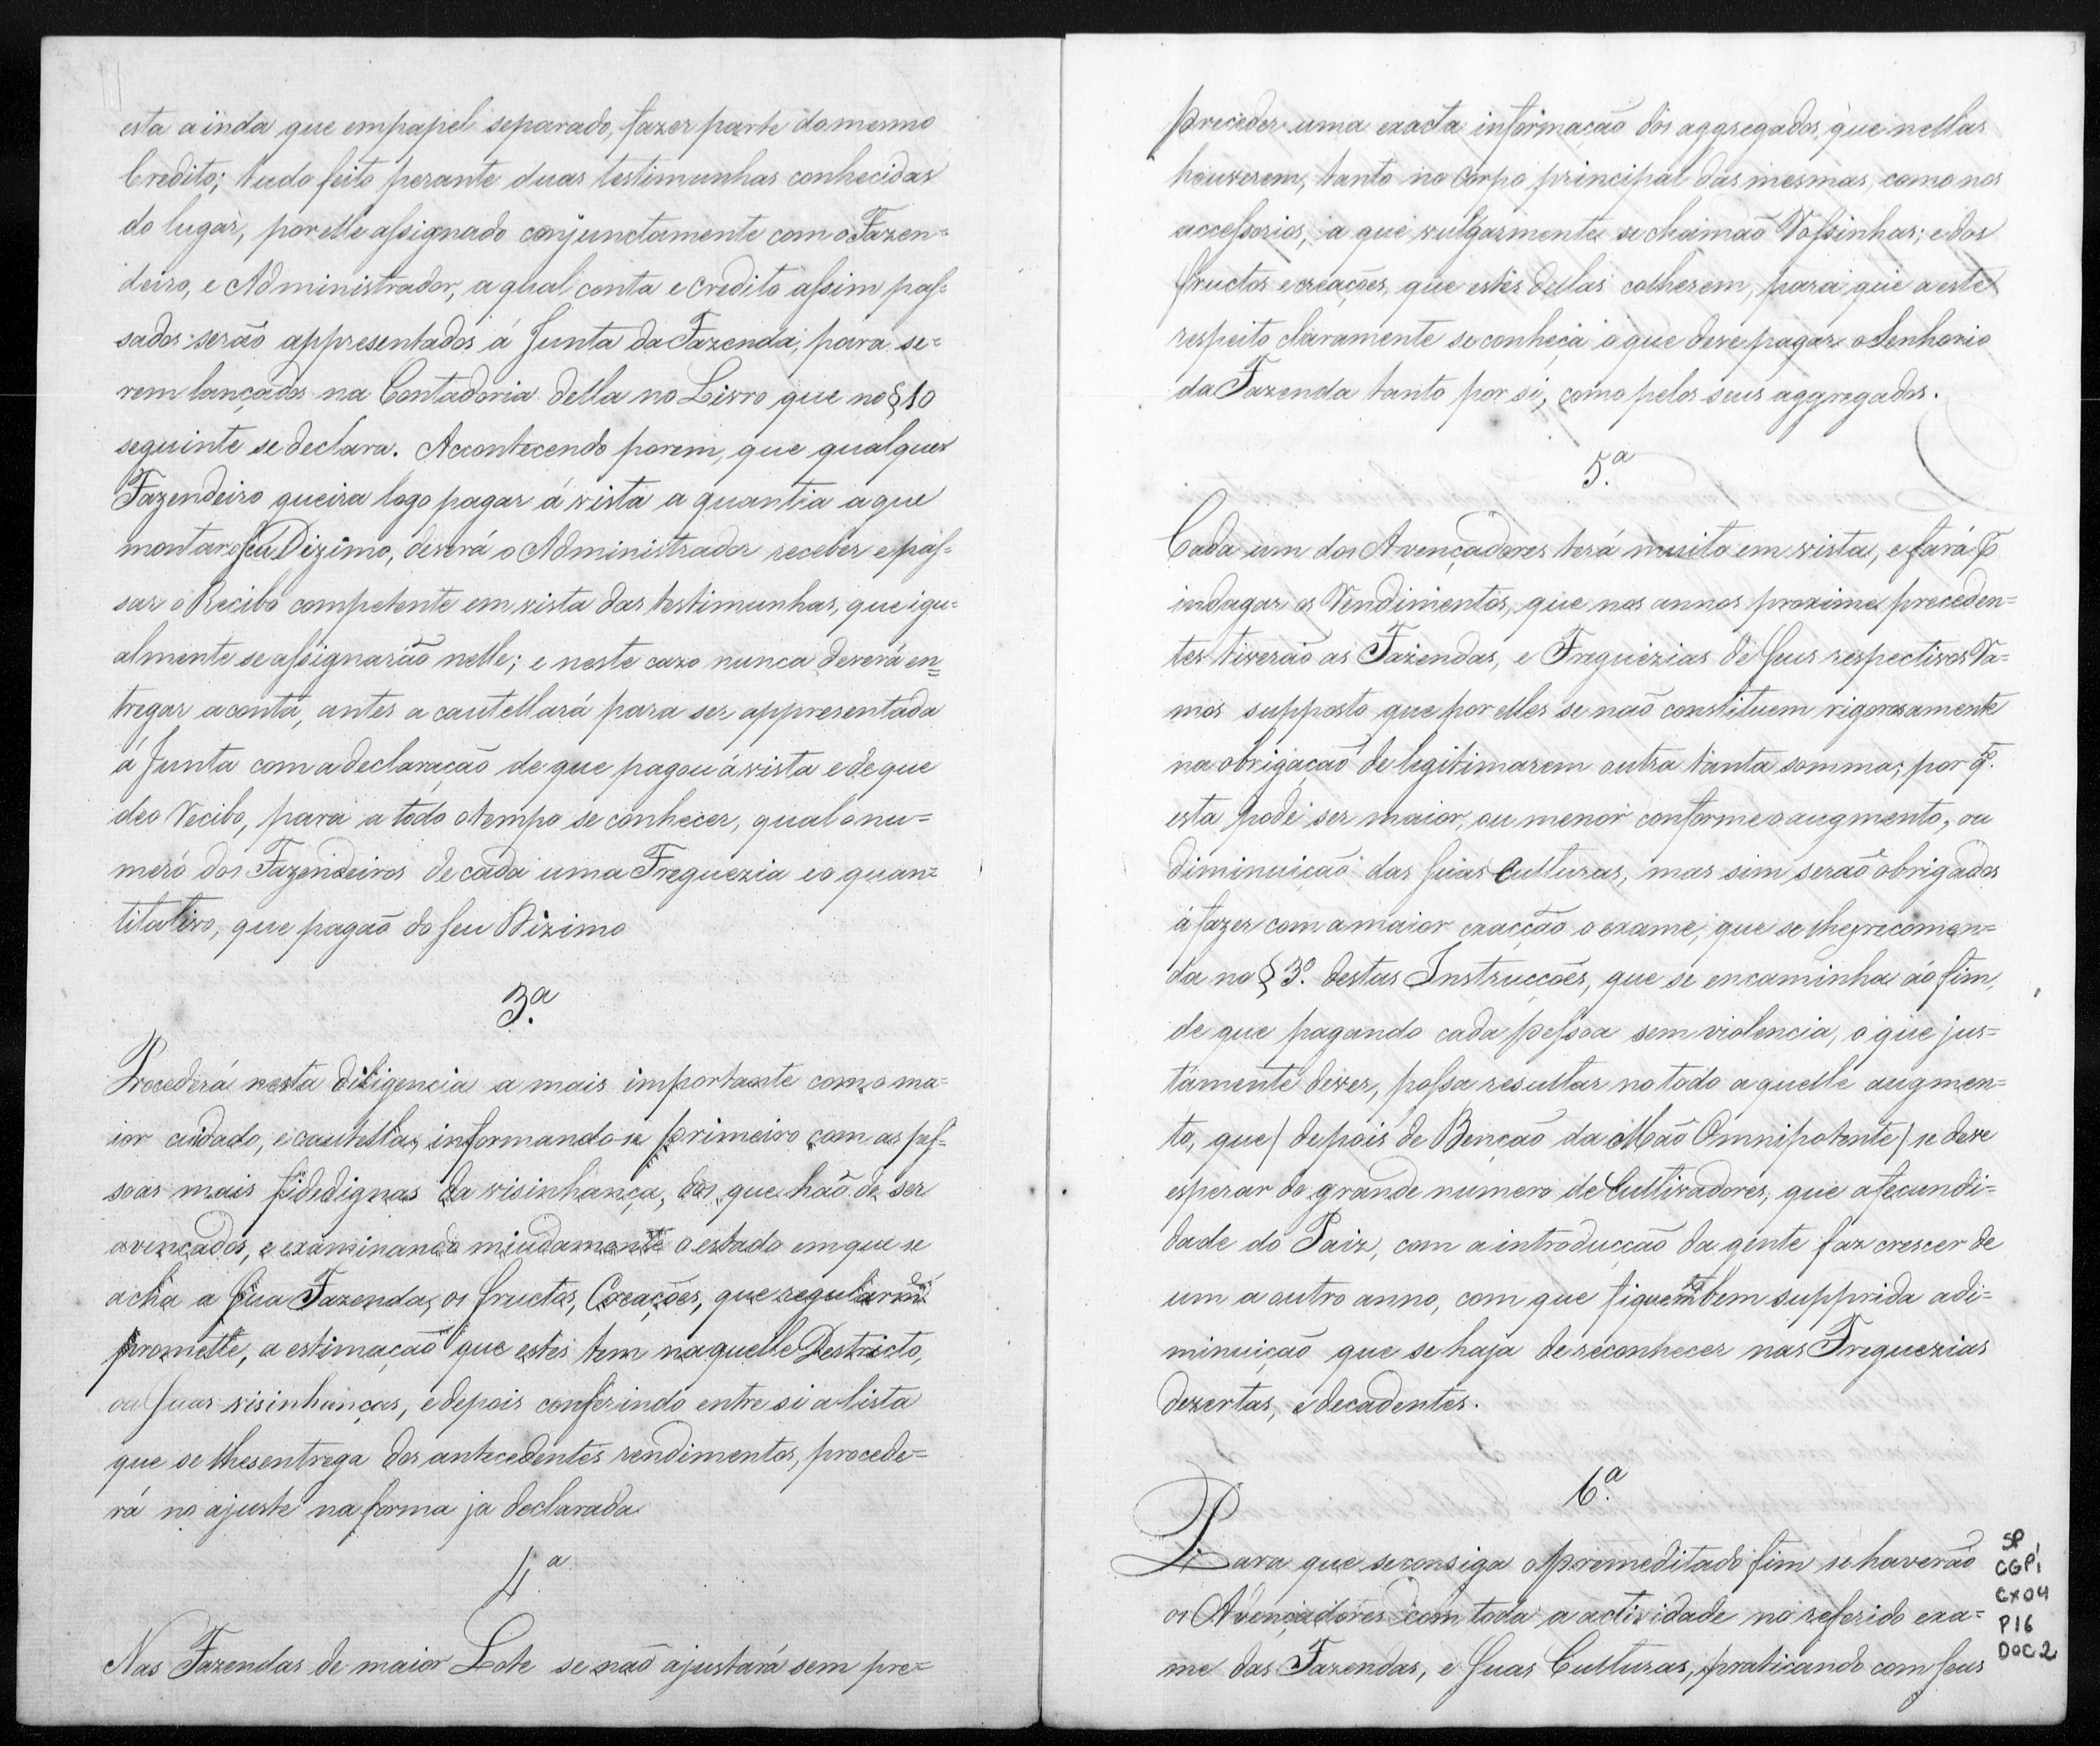 esta ainda que em papel separado, fazer parte do mesmo
Credito; tudo feito perante duas testimunhas conhecidas
do lugar, por elle assignado conjunctamente com o Fazen=
deiro, e Administrador, a qual conta e credito assim pas=
sados serão appresentados á Junta da Fazenda, para se=
rem lançados na Contadoria della no Livro que no § 10
seguinte se declara. Accontecendo porem, que qualquer
Fazendeiro queira logo pagar á vista a quantia a que
montar o seu Dizimo, deverá o Administrador receber e pas=
sar o Recibo competente em vista das testimunhas, que igu=
almente se assignarão nelle; e neste cazo nunca deverá en=
tregar a conta, antes a cautellará para ser appresentada
á Junta com a declaração de que pagou á vista e de que
deo Recibo, para a todo o tempo se conhecer, qual o nu=
mero dos Fazendeiros de cada uma Freguezia e o quan=
titativo, que pagão do seu Dizimo
3.ª
Procederá nesta diligencia a mais importante com o ma=
ior cuidado, e cautella, informando se primeiro com as pes=
soas mais fidedignas da visinhança, dos que hão de ser
avençados, e examinando miudamente o estado em que se
acha a sua Fazenda, os fructos, Creações, que regularm.de
promette, a estimação que estes tem naquelle Destricto,
ou suas visinhanças, e depois conferindo entre si a lista
que se lhes entrega dos antecedentes rendimentos, procede=
rá no ajuste na forma ja declarada
4.ª
Nas Fazendas de maior Lote se não ajustará sem pre=
preceder uma exacta informação dos aggregados, que nellas
houverem, tanto no corpo principal das mesmas, como nos
accessorios, a que vulgarmente se chamão Rossinhas; e dos
fructos e creações, que estes dellas colherem, para que a este
respeito claramente se conheça o que deve pagar o Senhorio
da Fazenda tanto por si, como pelos seus aggregados.
5.ª
Cada um dos Avençadores terá muito em vista, e fará p
indagar os Rendimentos, que nos annos proximos preceden=
tes tiverão as Fazendas, e Freguezias de seus respectivos Ra=
mos supposto que por elles se não constituem rigorosamente
na obrigação de legitimarem outra tanta somma; por q.
esta póde ser maior, ou menor conforme o augmento, ou
diminuição das suas Culturas, mas sim serão obrigados
á fazer com a maior exacção o exame, que se lhes recomen=
da no § 3.º destas Instrucções, que se encaminha áo fim,
de que pagando cada pessoa sem violencia, o que jus=
tamente dever, possa resultar no todo aquelle augmen=
to, que (depois de Benção da Mão Omnipotente) se deve
esperar do grande numero de Cultivadores, que a fecundi=
dade do Paiz, com a introducção da gente faz crescer de
um a outro anno, com que fiquem bem supprida a di=
minuição que se haja de reconhecer nas Freguezias
dezertas, e decadentes.
6.ª
Para que se consiga o premeditado fim se haverão
os Avençadores com toda a actividade no referido exa=
me das Fazendas, e suas Culturas, praticando com seus
SP
CGPI
CX04
P16
DOC2